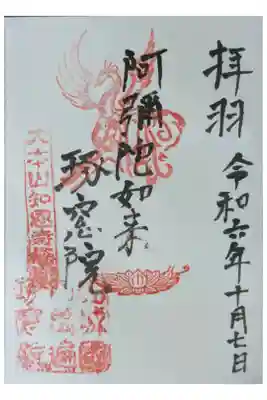 拝羽
令和六年十月七日
阿彌陀如来
琢窓院
大本山知恩寺